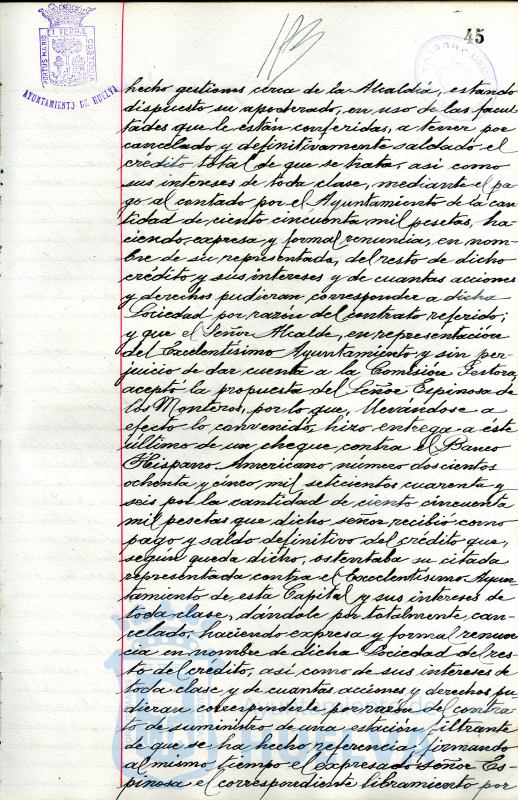 45
PORTUS MARIS ET TERRÆ CUSTODIA
AYUNTAMIENTO DE HUELVA
hecho gestiones cerca de la Alcaldía, estando
dispuesto su apoderado, en uso de las facul
tades que le están conferidas, a tener por
cancelado y definitivamente saldado el
crédito total de que se trata, así como
sus intereses de toda clase, mediante el pa
go al contado por el Ayuntamiento de la can
tidad de ciento cincuenta mil pesetas, ha
ciendo expresa y formal renuncia, en nom
bre de su representada, del resto de dicho
crédito y sus intereses y de cuantas acciones
y derechos pudieran corresponder a dicha
Sociedad por razón del contrato referido;
y que el Señor Alcalde, en representación
del Excelentísimo Ayuntamiento y sin per-
juicio de dar cuenta a la Comisión Gestora,
aceptó la propuesta del Señor Espinosa de
los Monteros, por lo que, llevándose a
efecto lo convenido, hizo entrega a este
último de un cheque contra el Banco
Hispano Americano, número doscientos
ochenta y cinco mil setecientos cuarenta y
seis por la cantidad de ciento cincuenta
mil pesetas que dicho señor recibió como
pago y saldo definitivo del crédito que,
según queda dicho, ostentaba su citada
representada contra el Excelentísimo Ayun
tamiento de esta Capital y sus intereses de
toda clase, dándole por totalmente can-
celado, haciendo expresa y formal renun
cia en nombre de dicha Sociedad del res
to del crédito, así como de sus intereses de
toda clase y de cuantas acciones y derechos pu
dieran corresponderle por razón del contra
to de suministro de una estación filtrante
de que se ha hecho referencia; firmando
al mismo tiempo el expresado señor Es-
pinosa el correspondiente libramiento por